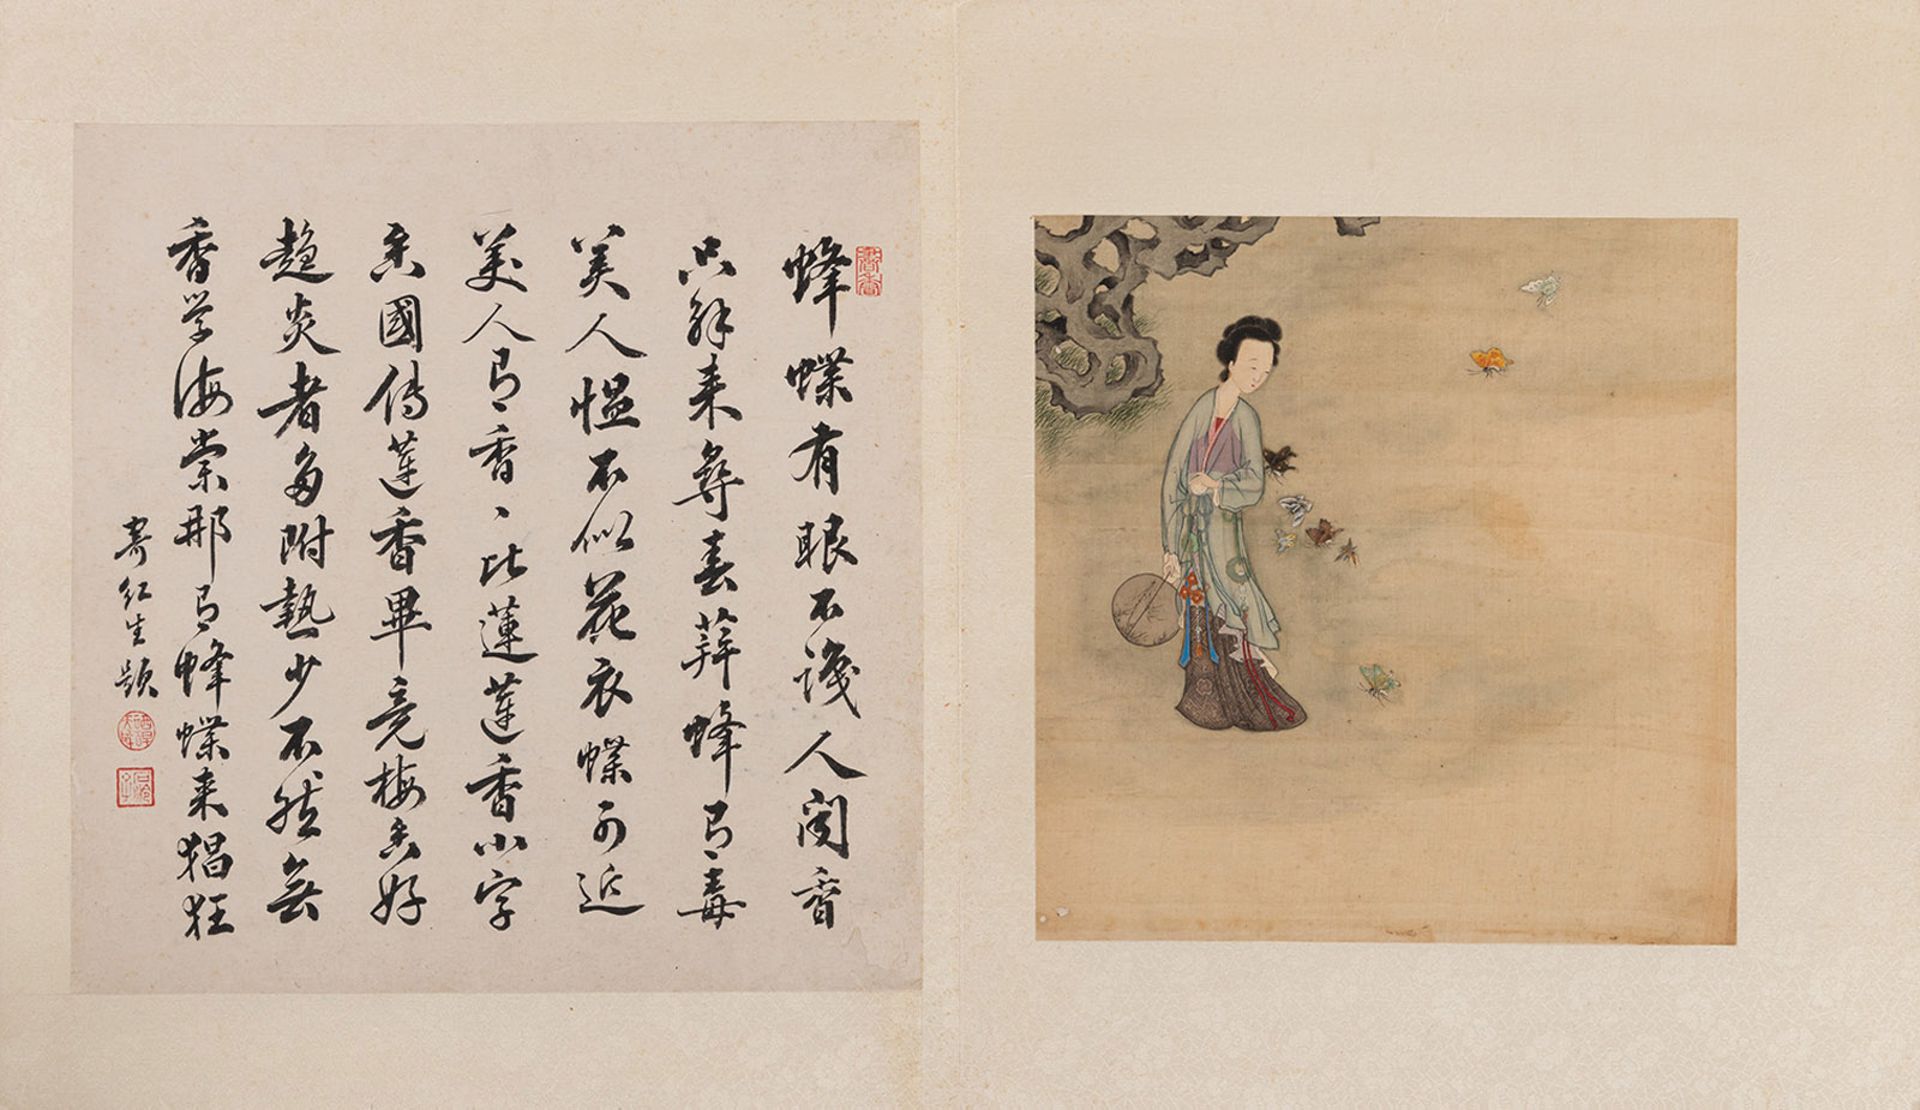 蜂蝶有眼不識人聞香
只解來尋春葬蜂有毒
美人愠不似花衣蝶可近
美人有香香比蓮蓮香小字
香國傳蓮香畢竟梅香好
趨炎者多附熱少不然無
香学海棠那有蜂蝶来猖狂
寄紅生題